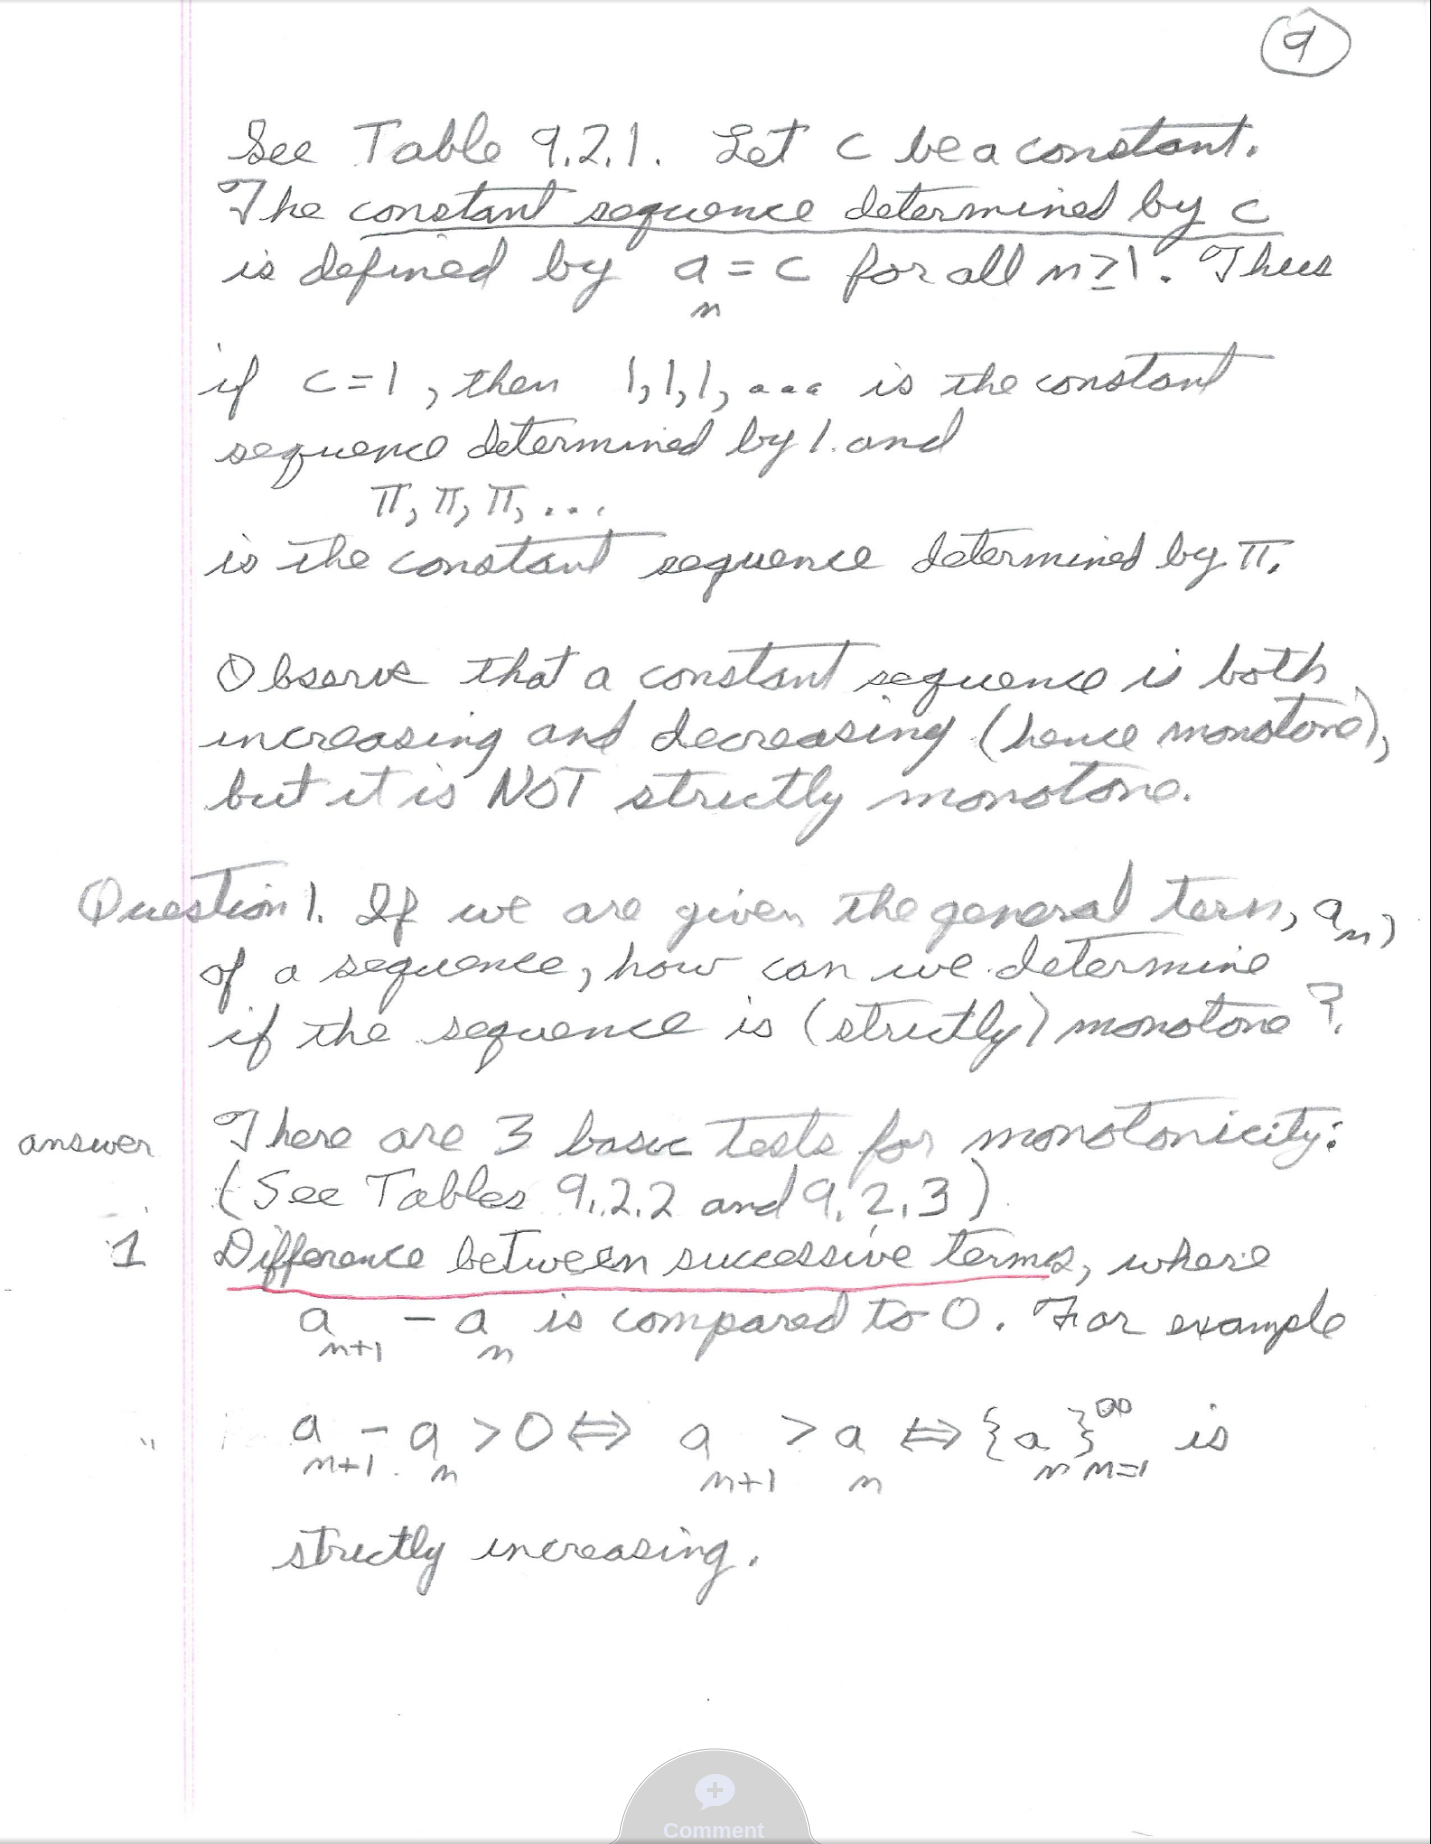 9
See Table 9.2.1. Let c be a constant.
The constant sequence determined by c
is defined by aₙ = c for all n ≥ 1. Thus
if c = 1, then 1, 1, 1, ... is the constant
sequence determined by 1. and
π, π, π, ...
is the constant sequence determined by π.
Observe that a constant sequence is both
increasing and decreasing (hence monotone),
but it is NOT strictly monotone.
Question 1. If we are given the general term, aₙ,
of a sequence, how can we determine
if the sequence is (strictly) monotone?
answer There are 3 basic tests for monotonicity:
(See Tables 9.2.2 and 9.2.3)
1 Difference between successive terms, where
aₙ₊₁ - aₙ is compared to 0. For example
aₙ₊₁ - aₙ > 0 ⇔ aₙ₊₁ > aₙ ⇔ {aₙ}ₙ₌₁^∞ is
strictly increasing.
Comment